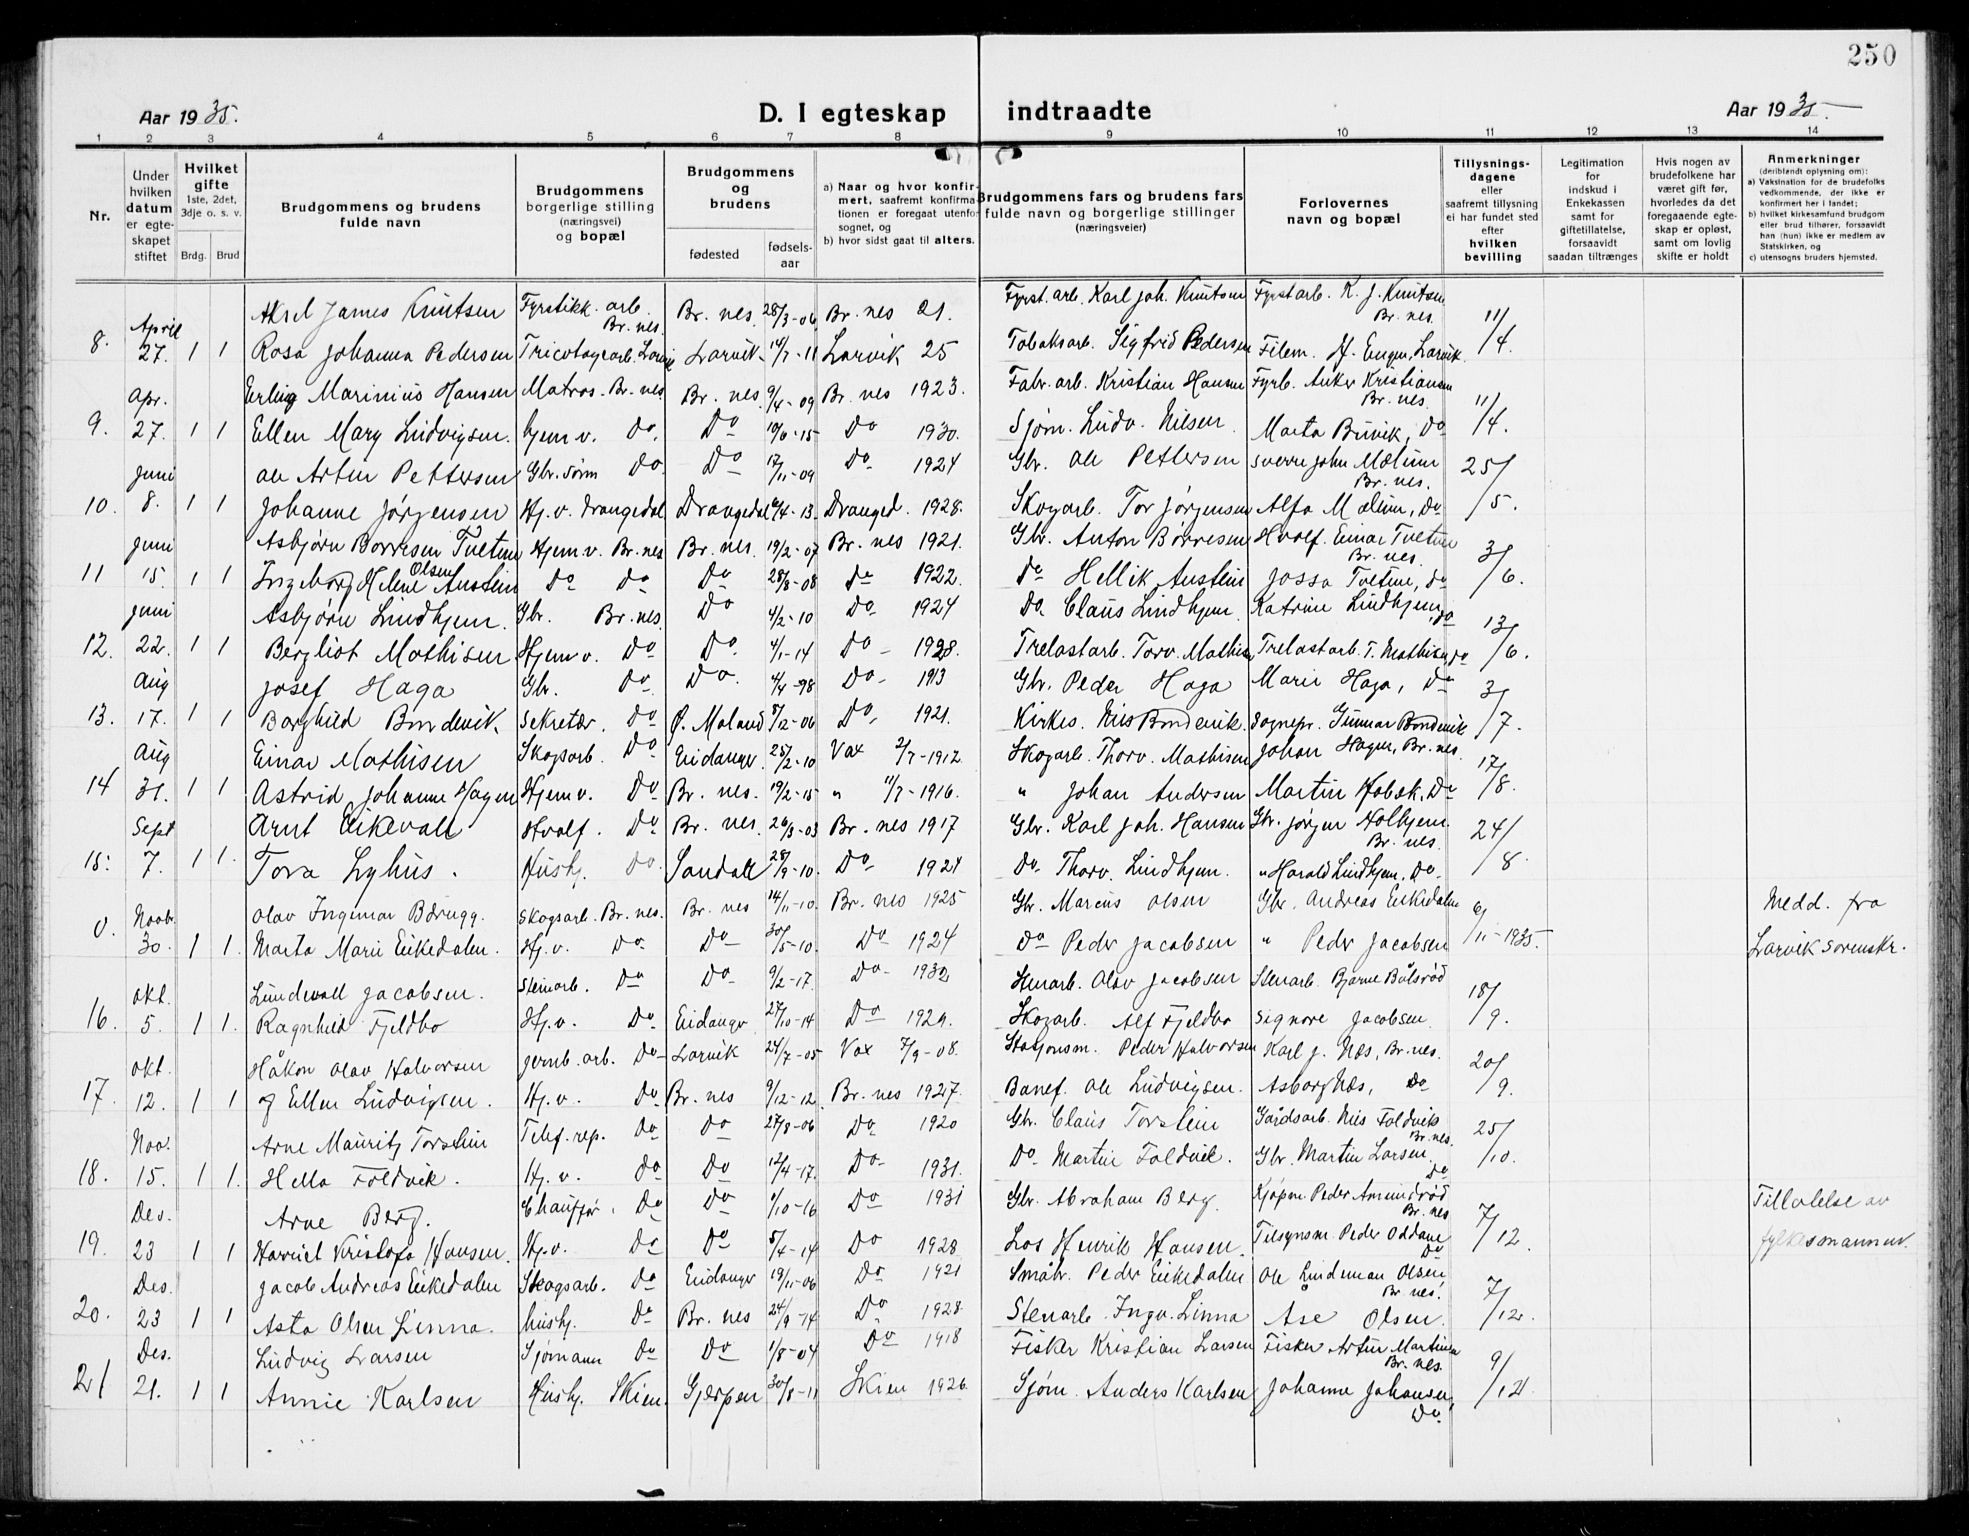 250
Aar 1935. D. I egteskap indtraadte Aar 1935.
1 2 3 4 5 6 7 8 9 10 11 12 13 14
Nr.
Under hvilken datum er egteskapet stiftet
Hvilket gifte 1ste, 2det, 3dje o. s. v. Brdg. Brud
Brudgommens og brudens fulde navn
Brudgommens borgerlige stilling (næringsvei) og bopæl
Brudgommens og brudens fødested fødselsaar
a) Naar og hvor konfirmert, saafremt konfirmationen er foregaat utenfor sognet, og
b) hvor sidst gaat til alters.
Brudgommens fars og brudens fars fulde navn og borgerlige stillinger (næringsveier)
Forlovernes navn og bopæl
Tillysningsdagene eller saafremt tillysning ei har fundet sted efter hvilken bevilling
Legitimation for indskud i Enkekassen samt for giftetillatelse, forsaavidt saadan tiltrænges
Hvis nogen av brudefolkene har været gift før, hvorledes da det foregaaende egteskap er opløst, samt om lovlig skifte er holdt
Anmerkninger (deriblandt oplysning om):
a) Vaksination for de brudefolks vedkommende, der ikke er konfirmert her i landet;
b) hvilket kirkesamfund brudgom eller brud tilhører, forsaavidt han (hun) ikke er medlem av Statskirken, og
c) utensogns bruders hjemsted.
April Aksel James Knutsen Fyrstikk. arb. Br. nes. Br. nes. 28/3-06 Br. nes 21. Fyrst. arb. Karl Joh. Knutsen Fyrstarb. K. J. Knutsen Br. nes. 11/4.
8. 27. 1 1 Rosa Johanna Pedersen Tricotagearb. Larvik Larvik 14/7-11 Larvik 25 Tobaksarb. Sigfrid Pedersen Filem. H. Engen, Larvik.
Apr. Erling Marinius Hansen Matros. Br. nes. Br. nes. 9/4-09 Br. nes 1923. Fabr. arb. Kristian Hansen Fyrb. Anker Kristiansen Br. nes. 11/4.
9. 27. 1 1 Ellen Mary Ludvigsen. hjemv. Do. Do 10/6-15 Do 1930. Sjøm. Ludv. Nilsen Marta Buvik, Do
Juni Ole Artur Pettersen Gbr. sønn Do. Do 17/11-09 Do 1924 Gbr. Ole Pettersen Sverre John Mælum Br. nes. 25/5.
10. 8. 1 1 Johanne Jørgensen Hj. v. Drangedal Drangedal 4-13 Dranged. 1928. Skogarb. Tor Jørgensen Alfa Mælum, Do
Juni Asbjørn Borresen Tveten Hjemv. Br. nes Br. nes. 19/2-07 Br. nes 1921. Gbr. Anton Børresen Hvalf. Einar Tveten Br. nes. 3/6.
11 15. 1 1 Ingeborg Helene Olsen Austein Do Do Do 28/8-08 Do 1922. Do Hellik Austein Jossa Tveten, Do
Juni Asbjørn Lindhjem. Gbr. Br. nes. Do 4/2-10 Do 1924 Do. Claus Lindhjem Katrine Lindhjem, Do 13/6.
12. 22. 1 1 Bergliot Mathisen Hjemv. Do Do. 4/1-14 Do 1928. Trelastarb. Torv. Mathisen Trelastarb. T. Mathisen, Do
Aug Josef Haga Gbr. Do. Do. 4/4-98 Do 1913 Gbr. Peder Haga Marie Haga, Do 3/7.
13. 17. 1 1 Borghild Bondevik. Sekretær. Do Ø. Moland 8/12-06 Do. 1921. Kirkes. Nils Bondevik. Sognepr. Gunnar Bondevik
Aug Einar Mathisen Skogsarb. Do Eidanger. 25/2-10 Vax 2/7-1912. Skogarb. Thorv. Mathisen Johan Hagen, Br. nes. 17/8.
14 31. 1 1 Astrid Johanne Hagen Hjemv. Do Br. nes. 19/2-15 " 11/7-1916. " Johan Andersen Martin Hobæk, Do
Sept Arnt Eikevall Hvalf. Do Br. nes. 26/3-03 Br. nes 1917 Gbr. Karl Joh. Hansen Gbr. Jørgen Holhjem. Br. nes. 24/8.
15. 7. 1 1. Tora Lyhus. Hush. Do Sandall 28/9-10. Do 1924 Do Thorv. Lindhjem. " Harald Lindhjem, Do
Novb. Olav Ingemar Barugg. Skogsarb. Br. nes. Br. nes 14/11-10. Br. nes 1925 Gbr. Marius Olsen Gbr. Andreas Eikedalen 6/11-1935. Medd. fra
0. 30. 1 1. Marta Marie Eikedalen. Hj. v. Do Do 30/5-10. Do 1924 Do Peder Jacobsen " Peder Jacobsen Larvik sorenskr.
okt. Lundevall Jacobsen. Steinarb. Do Do 9/2-17. Do 1932 Stenarb. Olav Jacobsen Stenarb. Bjarne Bålsrød 18/9.
16. 5. 1 1. Ragnhild Fjeldbo Hj. v. Do Eidanger 27/10-14 Do 1929. Skogarb. Alf Fjeldbo Signore Jacobsen
okt. Håkon Olav Halvorsen Jernb. arb. Do Larvik 24/7-05 Vax 7/9-08. Stasjonsm. Peder Halvorsen Karl J. Næs, Br. nes. 20/9.
17. 12. 1 1 og Ellen Ludvigsen. Hj. v. Do Br. nes 9/12-12. Br. nes 1927. Banef. Ole Ludvigsen. Asborg Næs, Do
Nov. Arne Mauritz Torstein Telef. rep. Do Do 27/8-06 Do 1920 Gbr. Claus Torstein Gårdsarb. Nils Foldvik Br. nes. 25/10.
18. 15. 1 1. Hella Foldvik. Hj. v. Do Do 12/4-17. Do 1931. Do Martin Foldvik. Gbr. Martin Larsen. Do
Des. Arne Berg. Chauffør. Do Do 6/10-16 Do 1931 Gbr. Abraham Berg. Kjøpm. Peder Amundrød Br. nes 7/12. Tillatelse av
19. 23 1 1 Harriet Kristofa Hansen. Hj. v. Do Do 5/4-14 Do 1928 Los Henrik Hansen. Tilsynsm. Peder Oddane Do fylkesmannen.
Des. Jacob Andreas Eikedalen Skogsarb. Do Eidanger 19/11-06 Do 1921 Småbr. Peder Eikedalen Ole Lindeman Olsen, Br nes. 7/12.
20. 23 1 1 Asta Olsen Linna. Hushj. Do Br. nes 24/9-14 Do 1928. Stenarb. Ingv. Linna Åse Olsen.
Des. Ludvig Larsen Sjømann Do Do 1/8-04 Do 1918 Fisker Kristian Larsen Fisker Artur Martinsen Br. nes. 9/12.
21 21. 1 1 Annie Karlsen Hushj. Skien. Gjerpen 30/8-11 Skien 1926. Sjøm. Anders Karlsen Johanne Johansen, Do